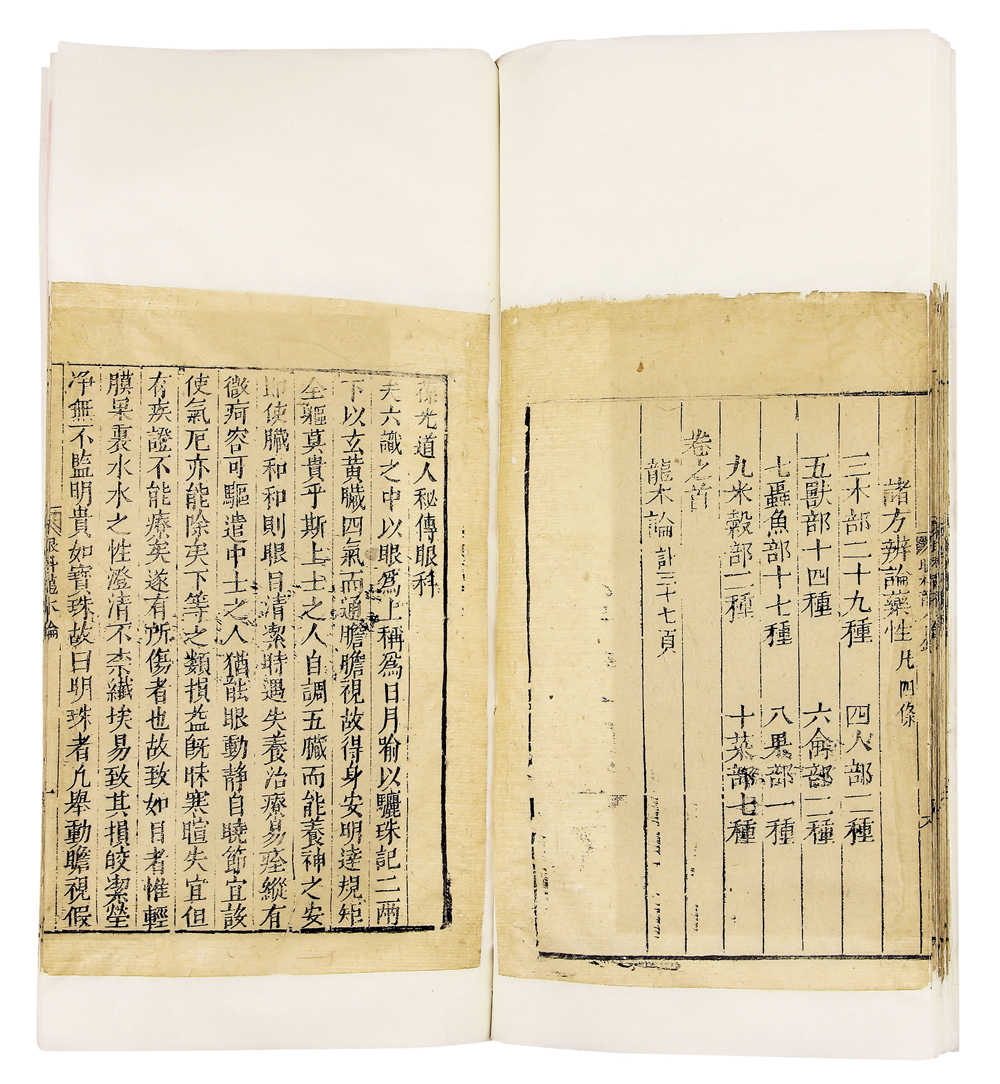 諸方辨論藥性凡四條
三木部二十九種 四人部二種
五獸部十四種 六禽部二種
七蟲魚部十七種 八果部一種
九米穀部二種 十菜部七種
卷之首
龍木論計三十七頁
葆光道人秘傳眼科
夫六識之中以眼爲上稱爲日月喻以驪珠記二兩
下以玄黃臟四氣而通膽膽視故得身安明達規矩
全軀莫貴乎斯上士之人自調五臟而能養神之安
即使臟和和則眼目清潔時遇失養治療易痊縱有
微疴容可驅遣中士之人猶能眼動靜自曉節宜該
使氣厄亦能除矣下等之類損益旣昧寒暄失宜但
有疾證不能療矣遂有所傷者也故致如目者惟輕
膜杲裹水水之性澄清不柰纖埃易致其損皎潔瑩
净無不監明貴如寶珠故曰明珠者凢舉動瞻視假
眼科龍木論
一